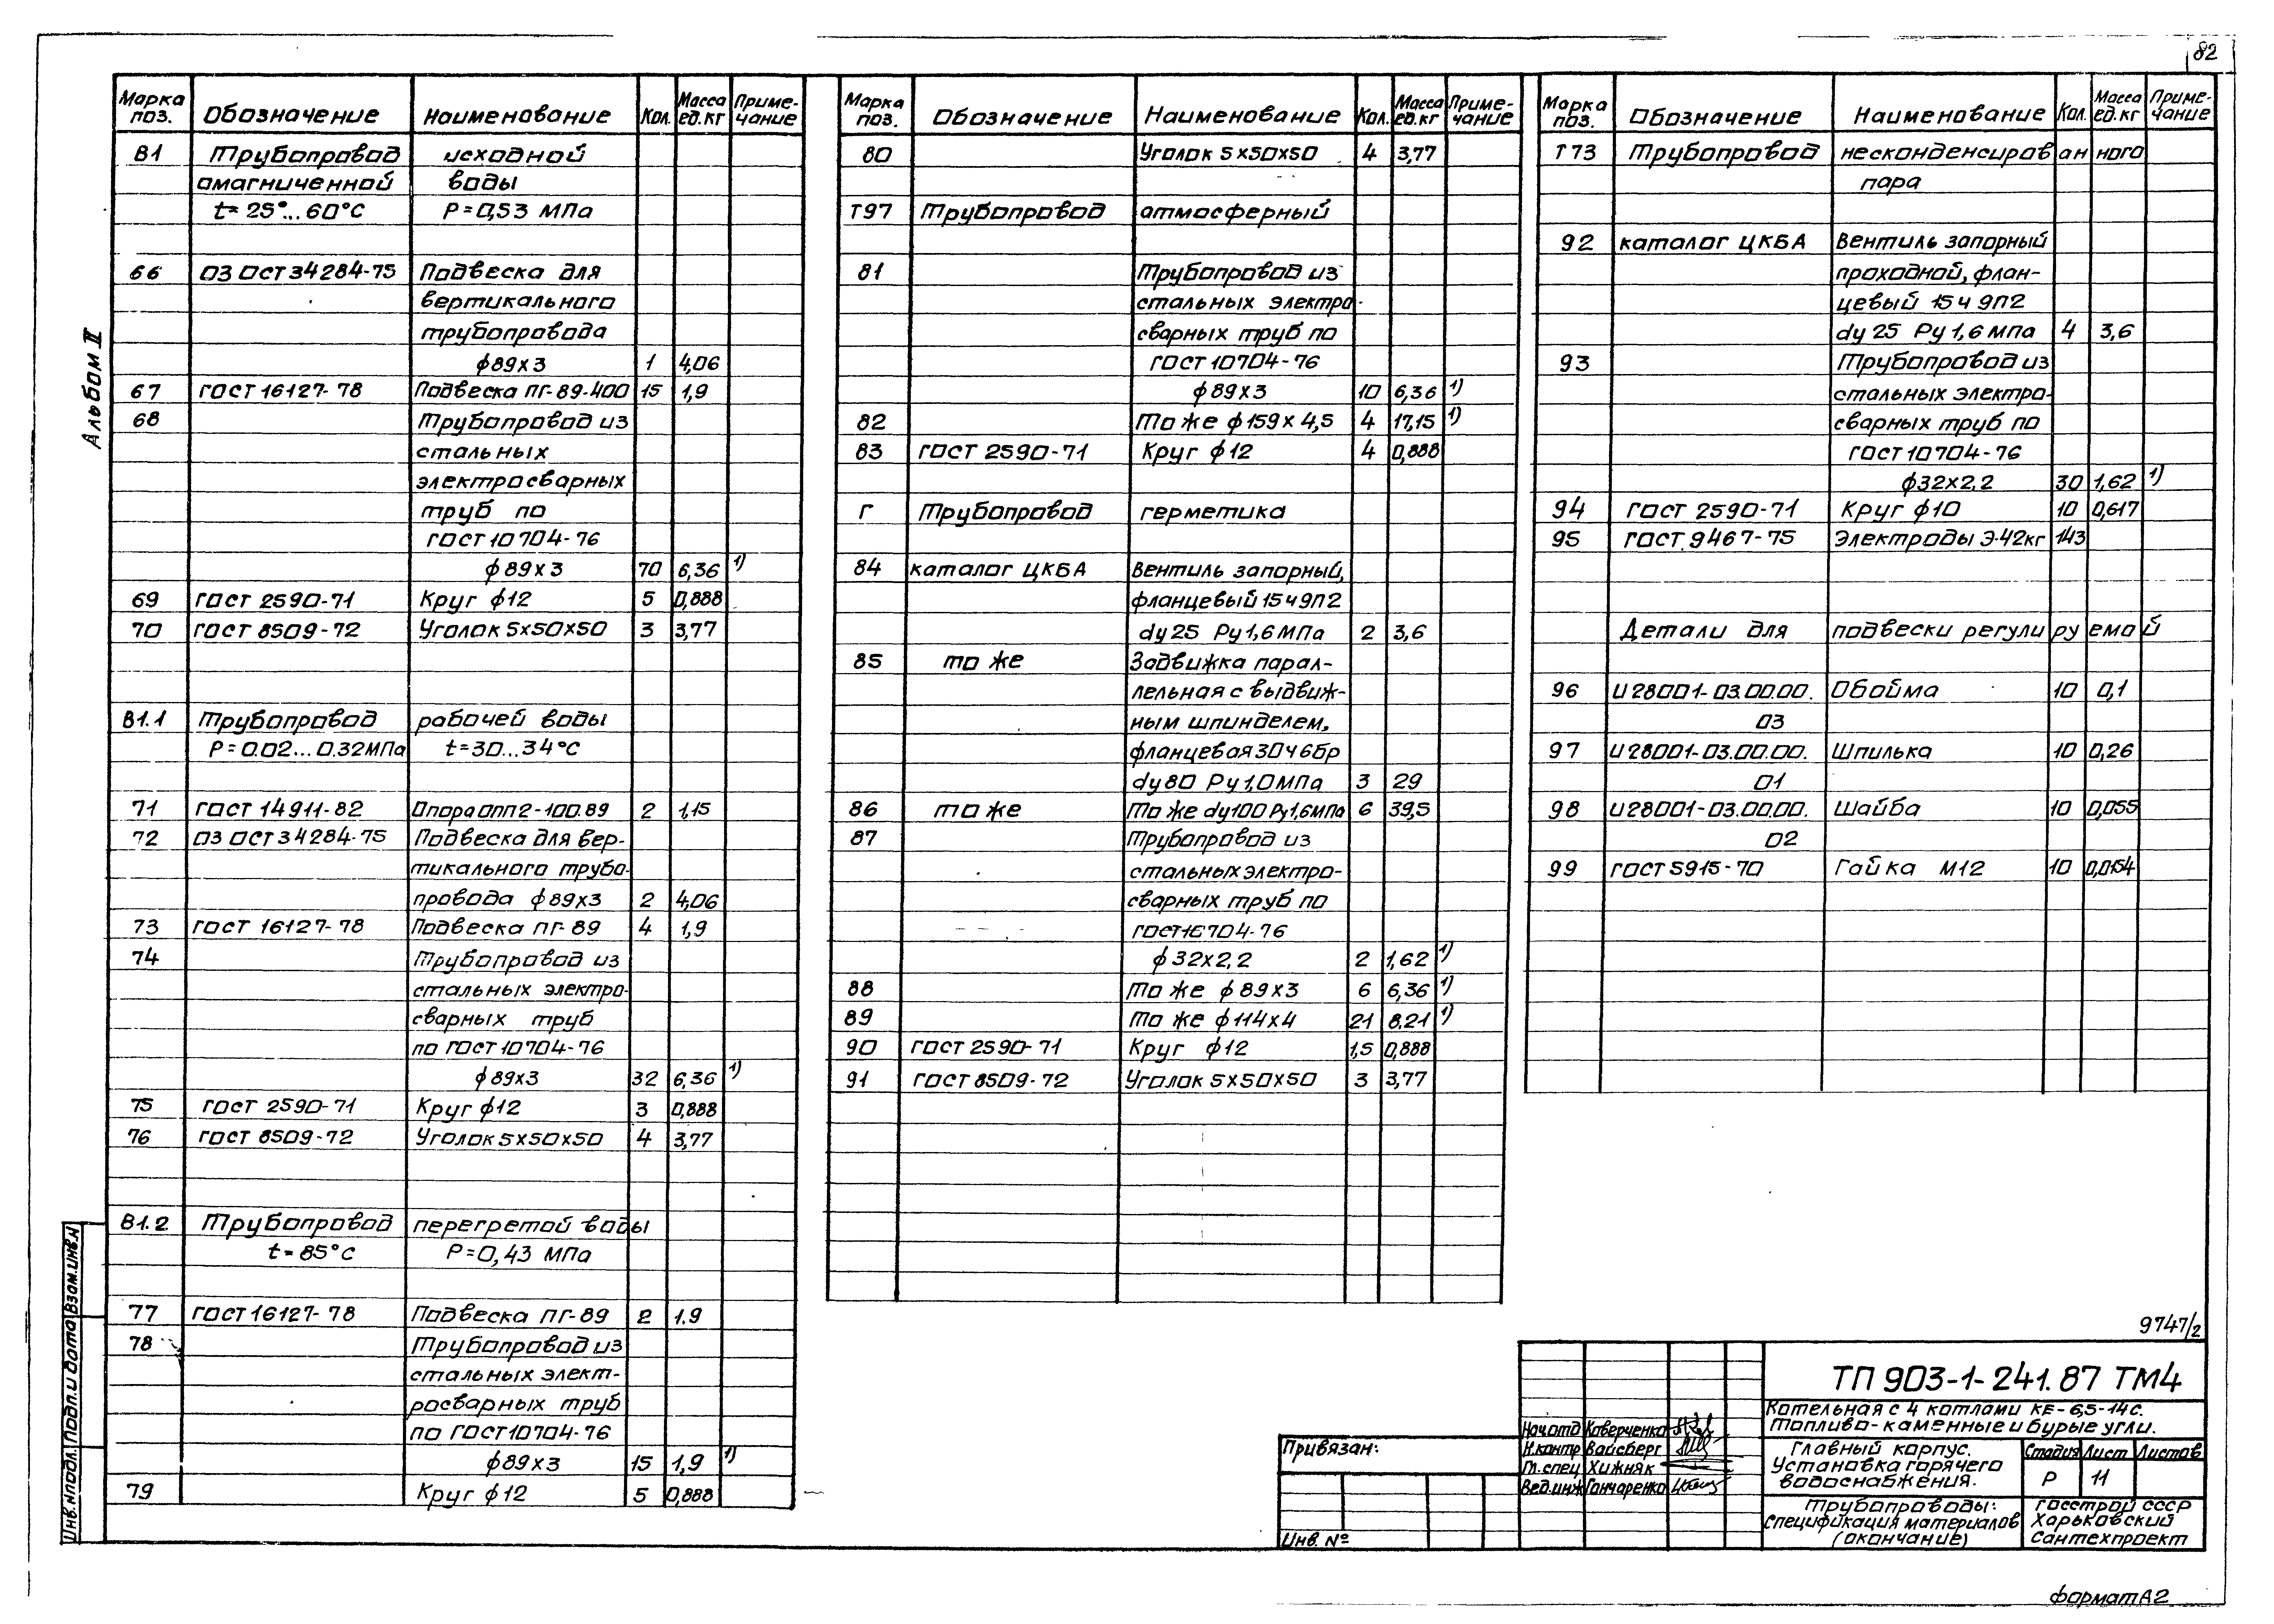 82
Альбом II
Марка поз. Обозначение Наименование Кол. Масса ед.кг Приме-чание
В1 Трубопровод исходной
омагниченной воды
t=25°...60°С Р=0,53 МПа
66 03 ОСТ 34284-75 Подвеска для
вертикального
трубопровода
ф89х3 1 4,06
67 ГОСТ 16127-78 Подвеска ПГ-89-400 15 1,9
68 Трубопровод из
стальных
электросварных
труб по
ГОСТ 10704-76
ф89х3 70 6,36 1)
69 ГОСТ 2590-71 Круг ф12 5 0,888
70 ГОСТ 8509-72 Уголок 5х50х50 3 3,77
В1.1 Трубопровод рабочей воды
Р=0.02...0.32МПа t=30...34°С
71 ГОСТ 14911-82 Опора ОПП2-100.89 2 1,15
72 03 ОСТ 34284-75 Подвеска для вер-
тикального трубо-
провода ф89х3 2 4,06
73 ГОСТ 16127-78 Подвеска ПГ-89 4 1,9
74 Трубопровод из
стальных электро-
сварных труб
по ГОСТ 10704-76
ф89х3 32 6,36 1)
75 ГОСТ 2590-71 Круг ф12 3 0,888
76 ГОСТ 8509-72 Уголок 5х50х50 4 3,77
В1.2 Трубопровод перегретой воды
t=85°С Р=0,43 МПа
77 ГОСТ 16127-78 Подвеска ПГ-89 2 1.9
78 Трубопровод из
стальных элект-
росварных труб
по ГОСТ 10704-76
ф89х3 15 1,9 1)
79 Круг ф12 5 0,888
Марка поз. Обозначение Наименование Кол. Масса ед.кг Приме-чание
80 Уголок 5х50х50 4 3,77
Т97 Трубопровод атмосферный
81 Трубопровод из
стальных электро-
сварных труб по
ГОСТ 10704-76
ф89х3 10 6,36 1)
82 То же ф159х4,5 4 17,15 1)
83 ГОСТ 2590-71 Круг ф12 4 0,888
Г Трубопровод герметика
84 каталог ЦКБА Вентиль запорный,
фланцевый 15ч9П2
dy25 Ру1,6МПа 2 3,6
85 то же Задвижка парал-
лельная с выдвиж-
ным шпинделем,
фланцевая 30ч6бр
dy80 Ру1,0МПа 3 29
86 то же То же dy100 Ру1,6МПа 6 39,5
87 Трубопровод из
стальных электро-
сварных труб по
ГОСТ 10704-76
ф32х2,2 2 1,62 1)
88 То же ф89х3 6 6,36 1)
89 То же ф114х4 21 8,21 1)
90 ГОСТ 2590-71 Круг ф12 1,5 0,888
91 ГОСТ 8509-72 Уголок 5х50х50 3 3,77
Марка поз. Обозначение Наименование Кол. Масса ед.кг Приме-чание
Т73 Трубопровод несконденсированного
пара
92 каталог ЦКБА Вентиль запорный
проходной, флан-
цевый 15ч9П2
dy25 Ру1,6МПа 4 3,6
93 Трубопровод из
стальных электро-
сварных труб по
ГОСТ 10704-76
ф32х2,2 30 1,62 1)
94 ГОСТ 2590-71 Круг ф10 10 0,617
95 ГОСТ 9467-75 Электроды Э-42кг 143
Детали для подвески регулируемой
96 И28001-03.00.00. Обойма 10 0,1
03
97 И28001-03.00.00. Шпилька 10 0,26
01
98 И28001-03.00.00. Шайба 10 0,055
02
99 ГОСТ 5915-70 Гайка М12 10 0,0154
9747/2
ТП 903-1-241.87 ТМ4
Котельная с 4 котлами КЕ-6,5-14С.
Топливо-каменные и бурые угли.
Нач.отд Каверченко
Н.контр Вайсберг
Гл.спец Хижняк
Вед.инж Гончаренко
Главный корпус.
Установка горячего
водоснабжения.
Стадия Лист Листов
Р 11
Трубопроводы:
Спецификация материалов
(окончание)
Госстрой СССР
Харьковский
Сантехпроект
Привязан:
Инв. №
Инв.№подл. Подп. и дата Взам.инв.№
формат А2